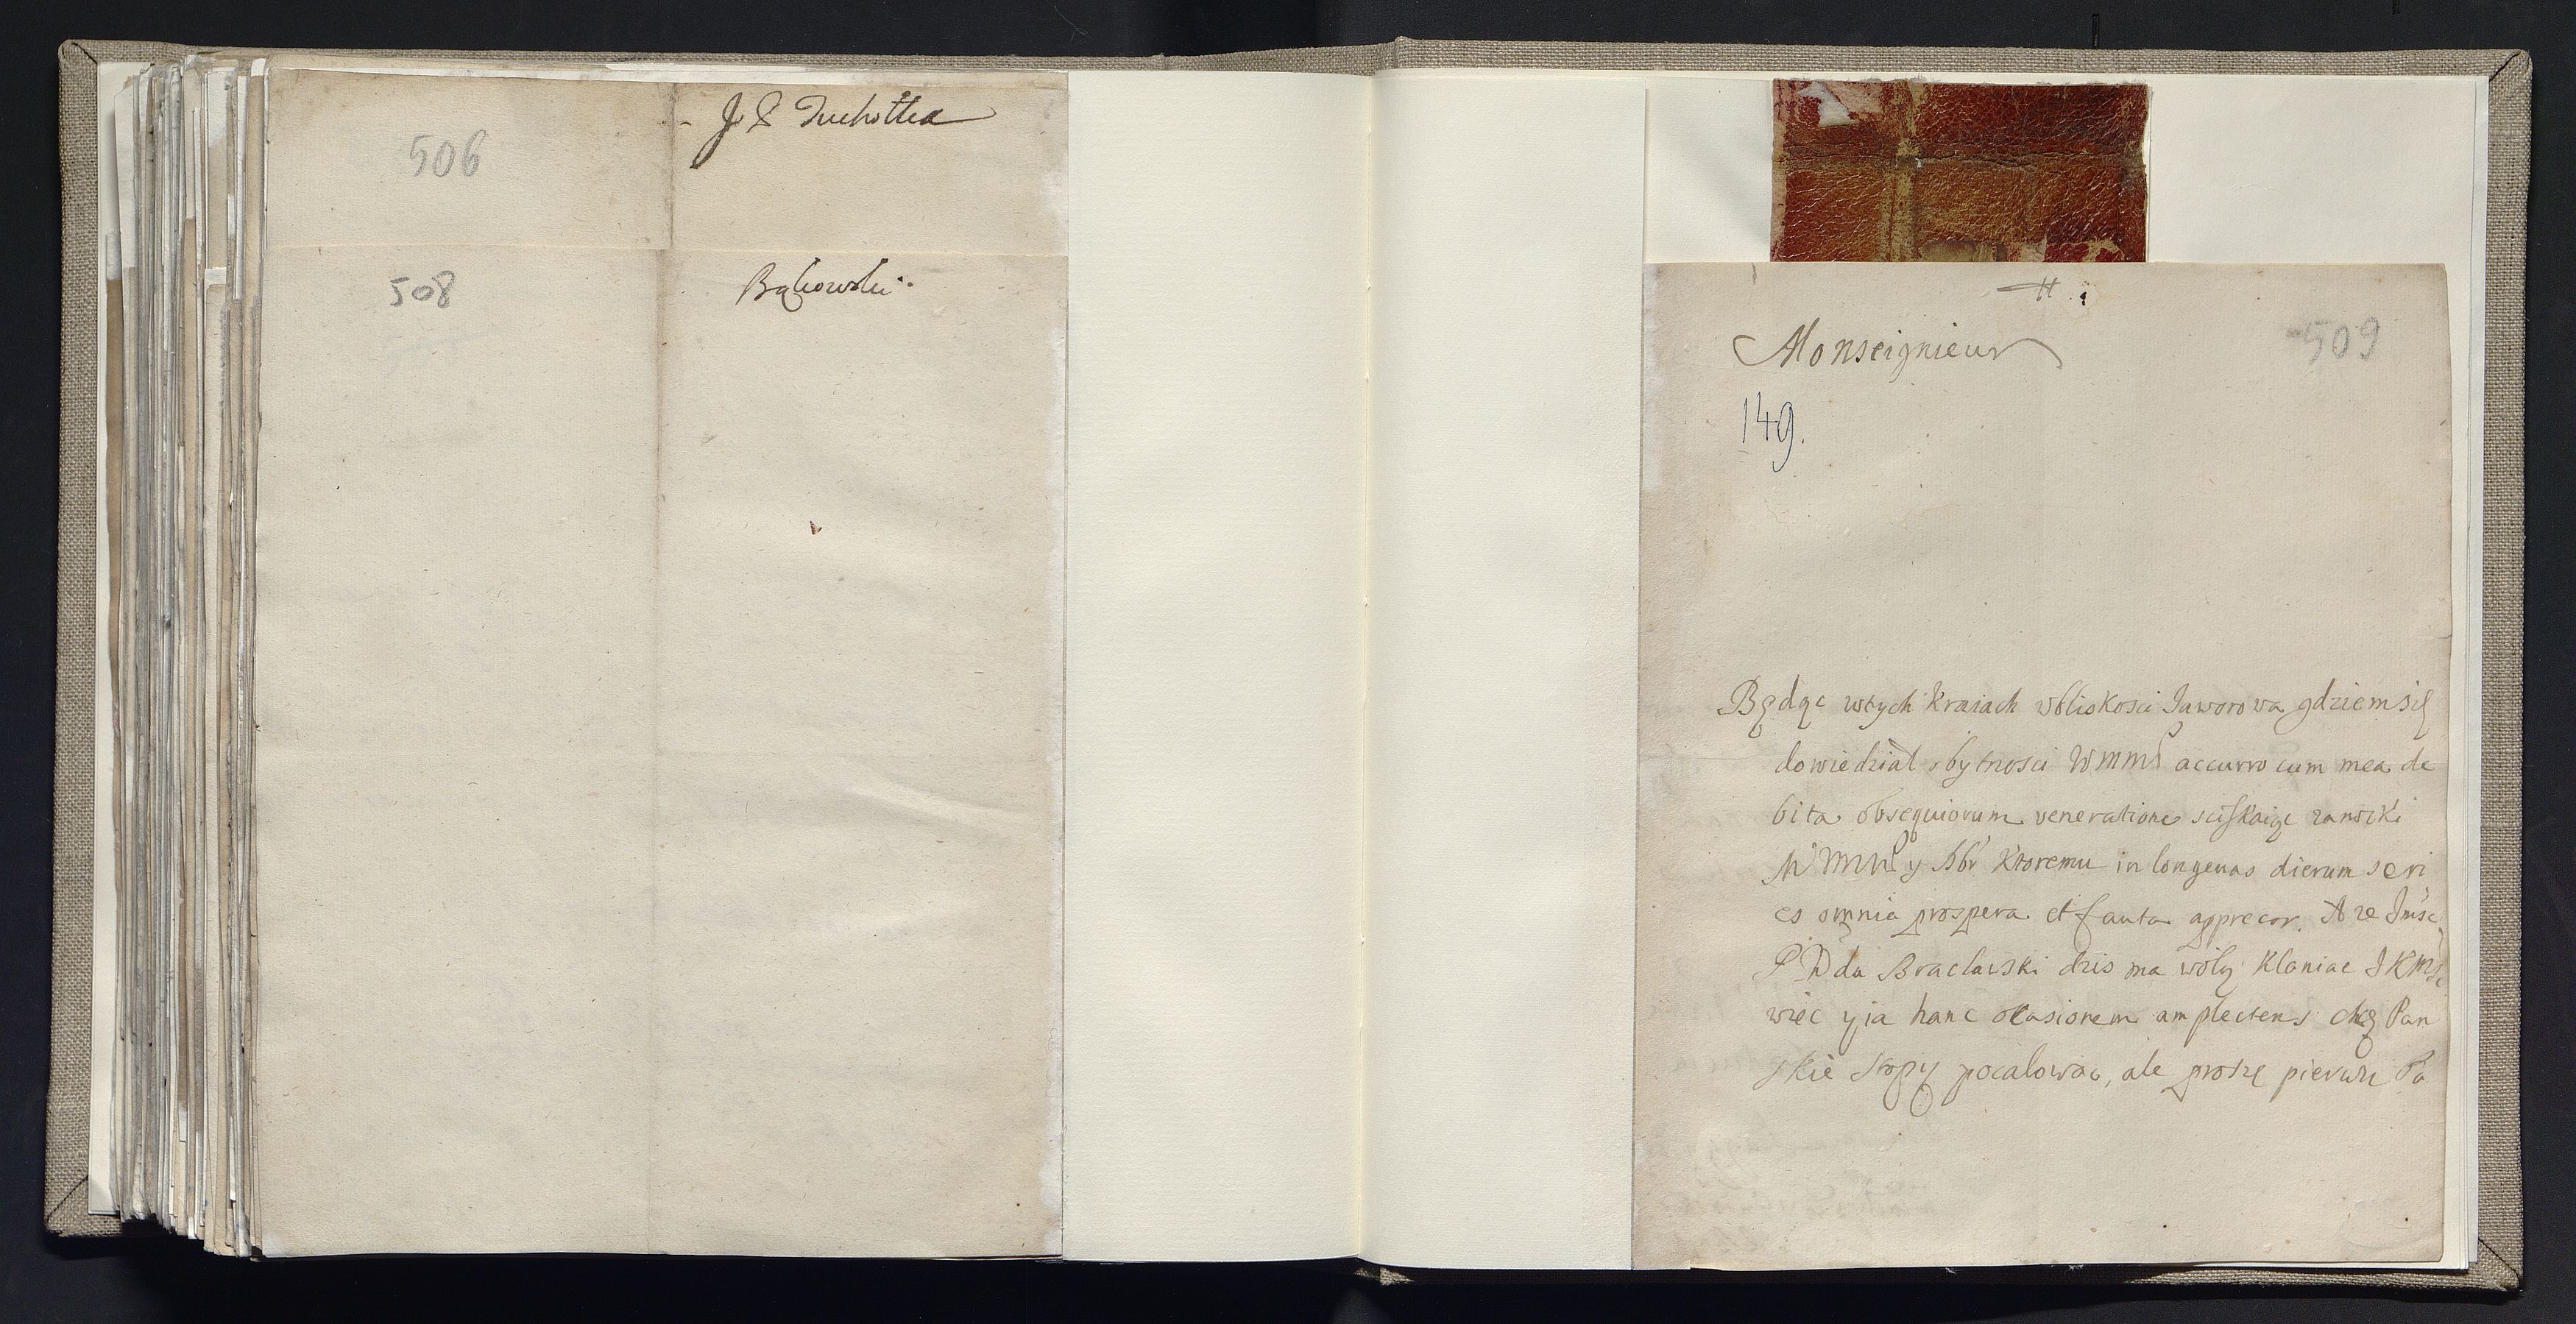 506
J P Tuchołka
508
Bąkowski
Monseignieur
509
149.
Będąc wtych kraiach wbliskosci Jaworowa gdziem się
dowiedział o bytnosci WMM accurro cum mea de
bita obsequiorum veneratione sciskaiąc ranięki
y Dbr ktoremu in longeuas dierum seri
es omnia prospera et fausta apprecor. A ze Jmsc
P Wda Bracławski dzis ma wolą kłaniac JKMsc
więc y ia hanc occasionem amplectens chcę Pan
skie stopy pocałowac, ale proszę pierwei Pa